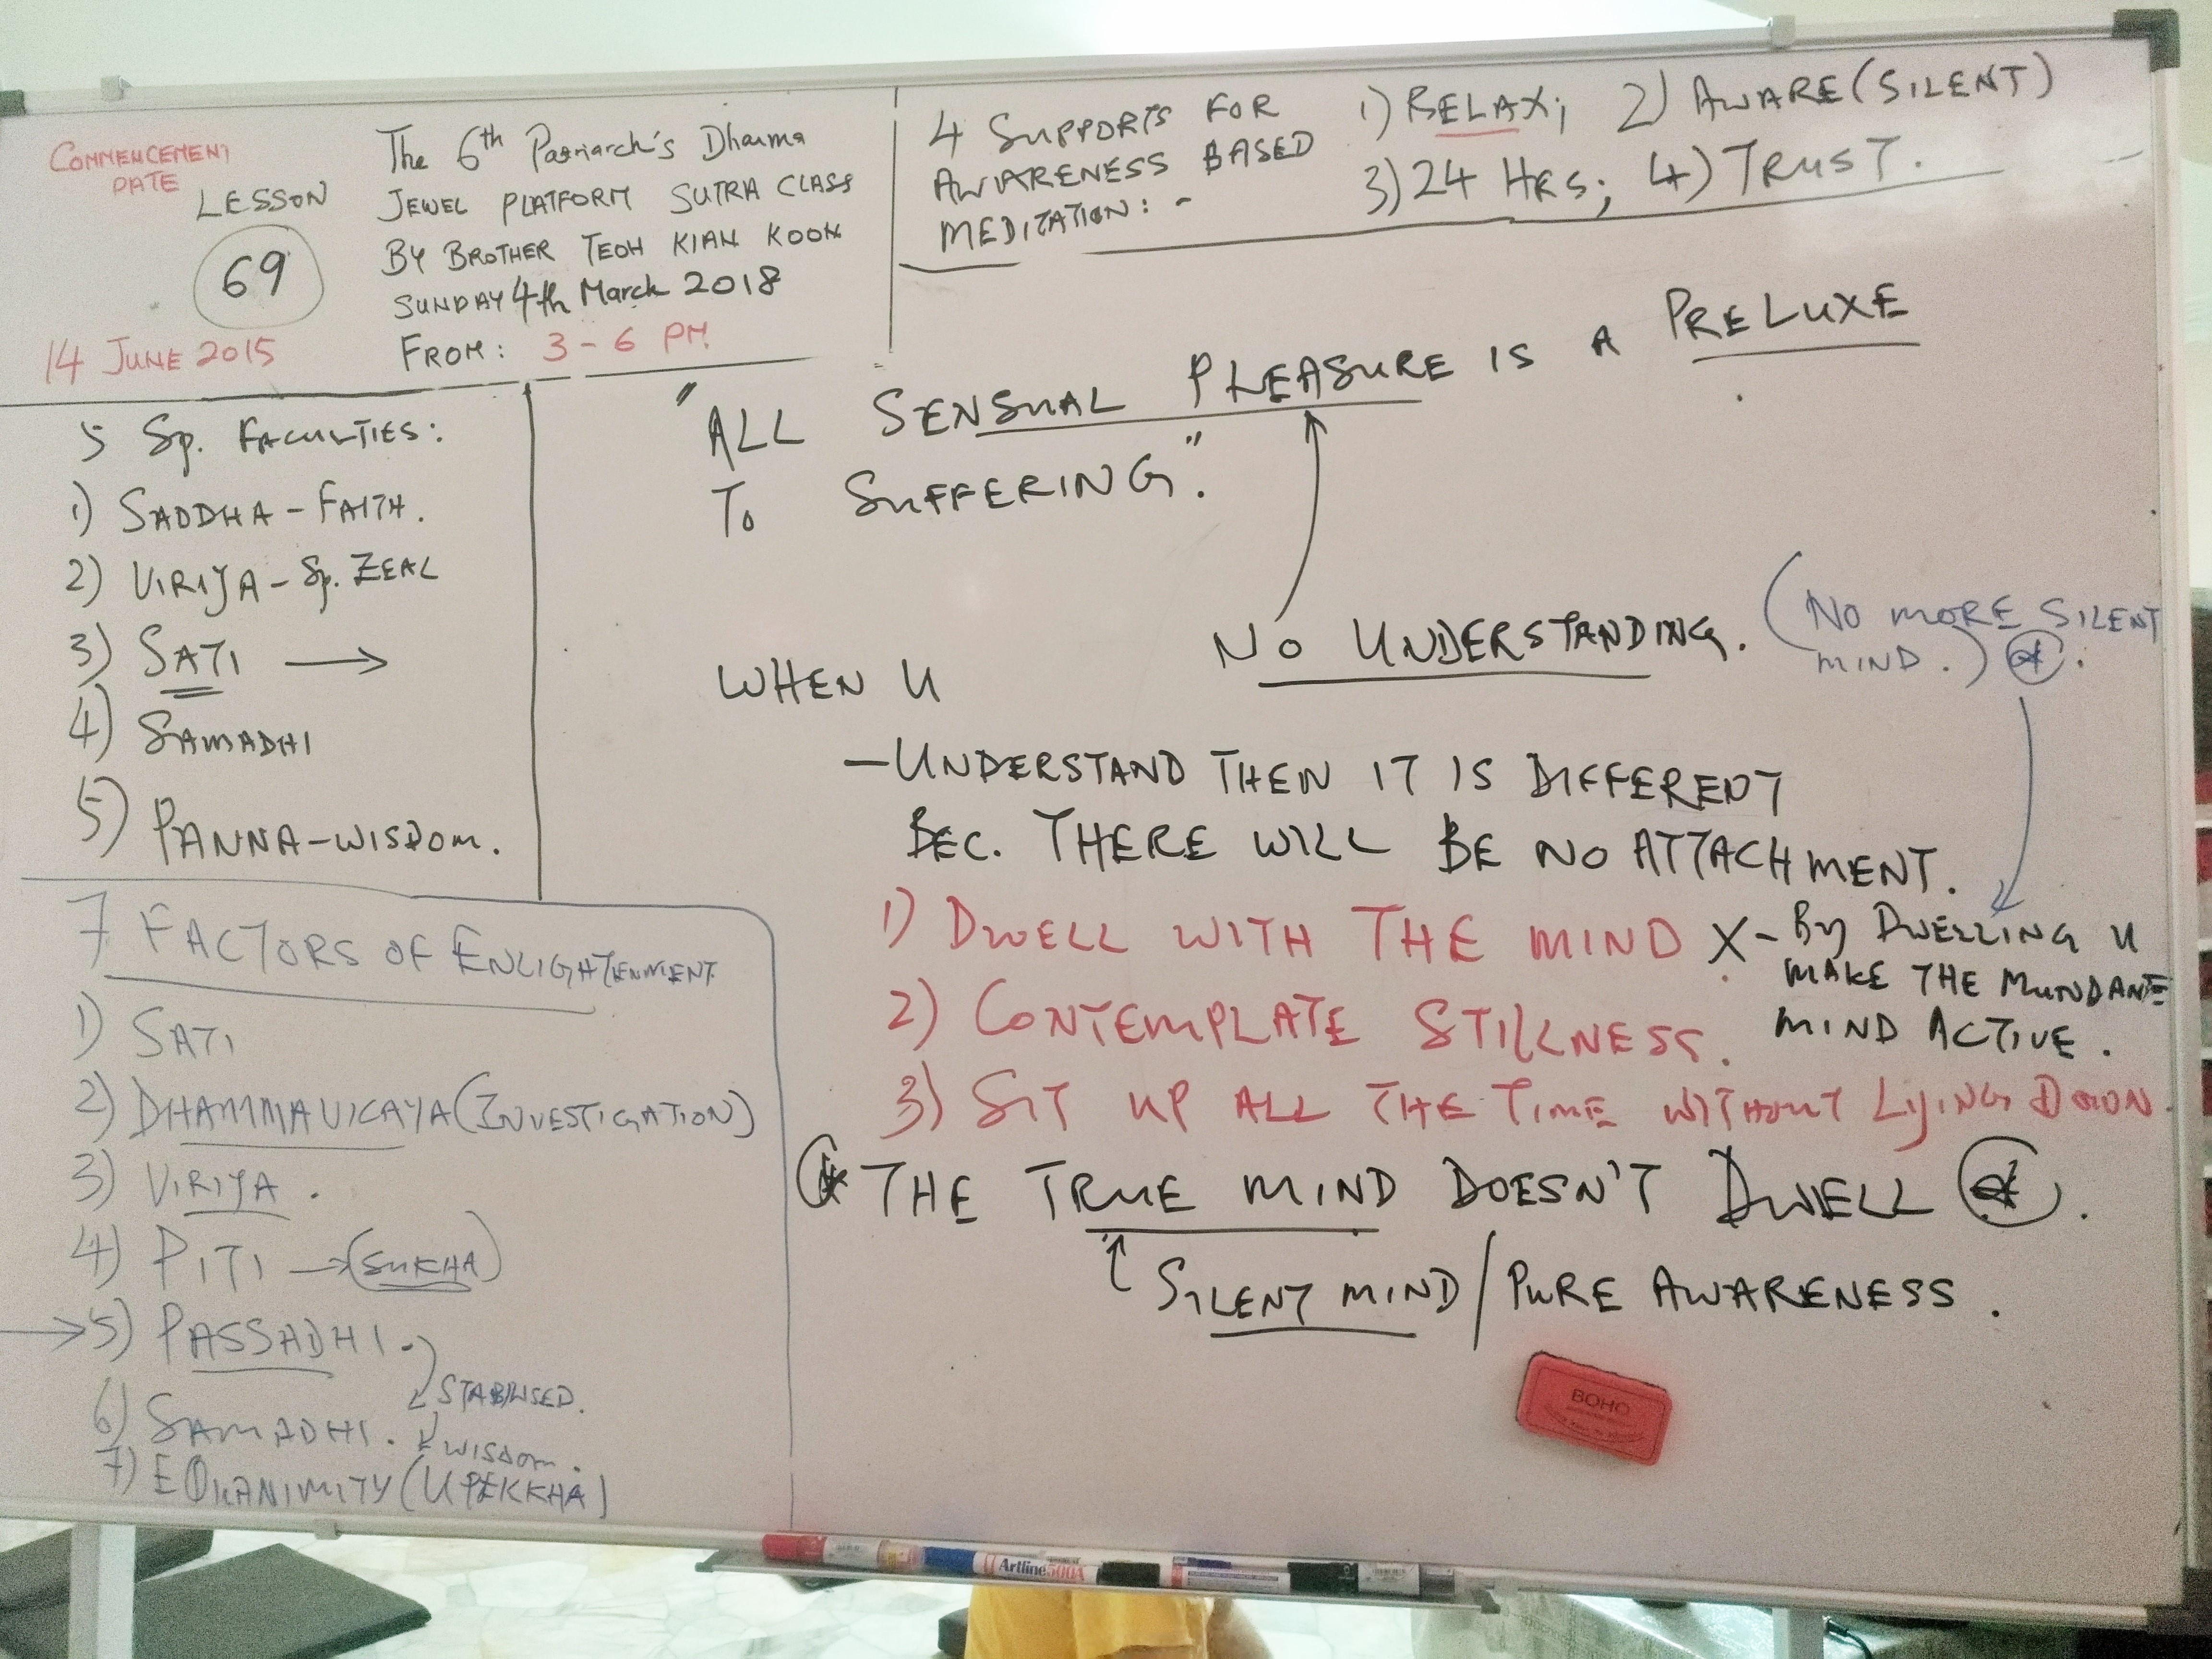 COMMENCEMENT
DATE
LESSON
69
14 JUNE 2015
The 6th Patriarch's Dharma
JEWEL PLATFORM SUTRA CLASS
BY BROTHER TEOH KIAN KOON
SUNDAY 4th March 2018
FROM: 3-6 PM
4 SUPPORTS FOR
AWARENESS BASED
MEDITATION: -
1) RELAX; 2) AWARE (SILENT)
3) 24 HRS; 4) TRUST.
5 Sp. FACULTIES:
1) SADDHA - FAITH.
2) VIRIYA - Sp. ZEAL
3) SATI →
4) SAMADHI
5) PANNA - WISDOM.
7 FACTORS OF ENLIGHTENMENT
1) SATI
2) DHAMMAVICAYA (INVESTIGATION)
3) VIRIYA.
4) PITI → (SUKHA)
→ 5) PASSADHI.
STABILISED.
6) SAMADHI.
WISDOM.
7) EQUANIMITY (UPEKKHA)
"ALL SENSUAL PLEASURE IS A PRELUXE
TO SUFFERING."
NO UNDERSTANDING.
(NO MORE SILENT
MIND.) *.
WHEN U
- UNDERSTAND THEN IT IS DIFFERENT
BEC. THERE WILL BE NO ATTACHMENT.
1) DWELL WITH THE MIND X - By DWELLING U
MAKE THE MUNDANE
MIND ACTIVE.
2) CONTEMPLATE STILLNESS.
3) SIT UP ALL THE TIME WITHOUT LYING DOWN.
* THE TRUE MIND DOESN'T DWELL *.
↑ SILENT MIND / PURE AWARENESS.
BOHO
Artline 500A